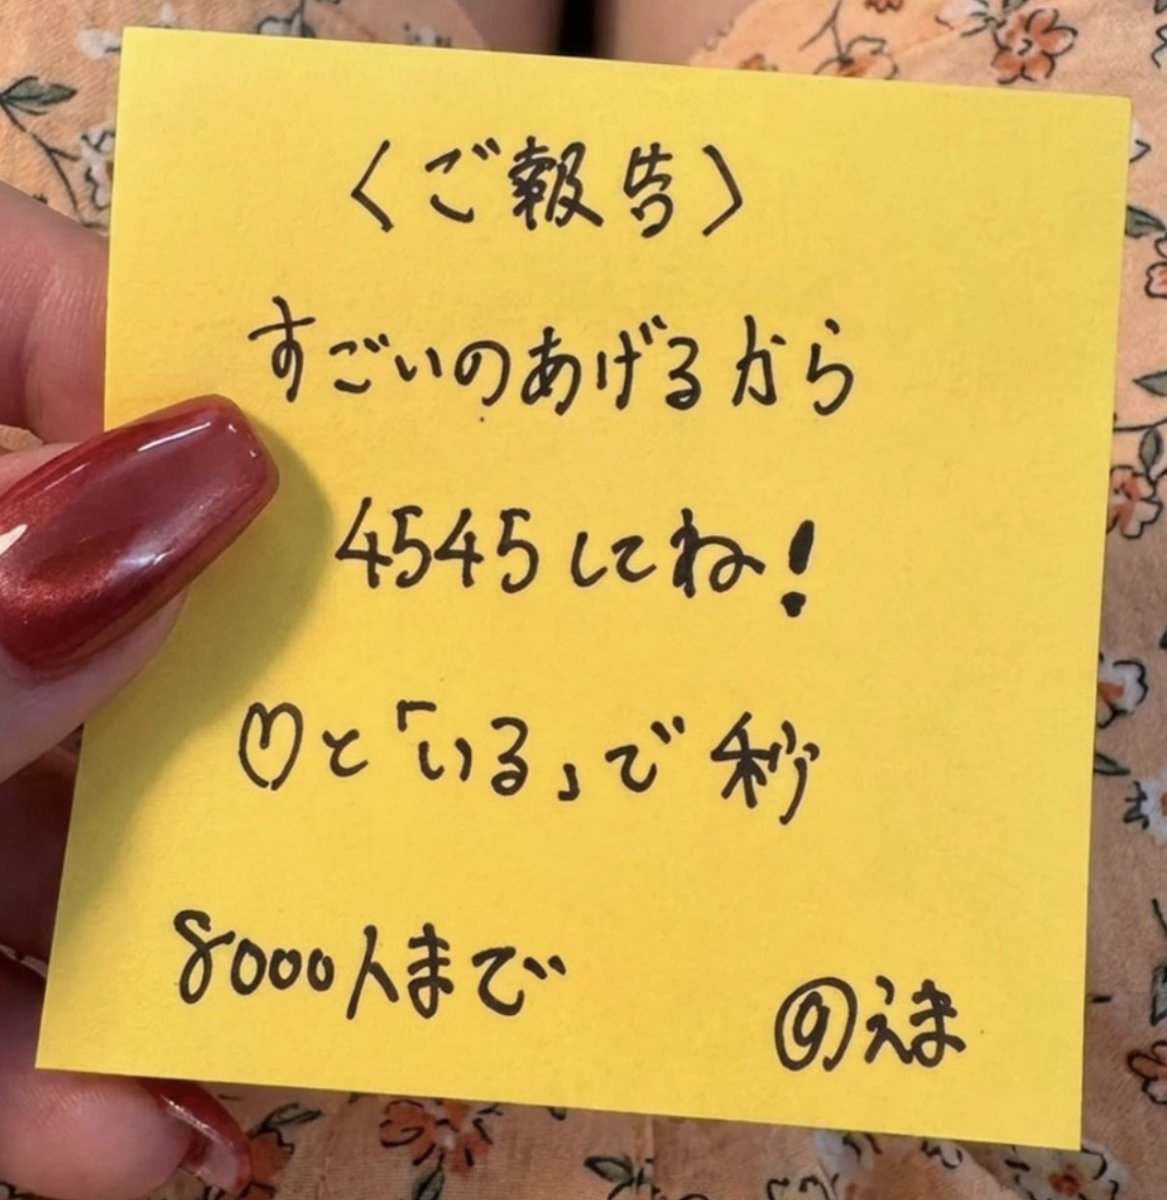 〈ご報告〉
すごいのあげるから
4545してね!
♡と「いる」で秒
8000人まで
@えま